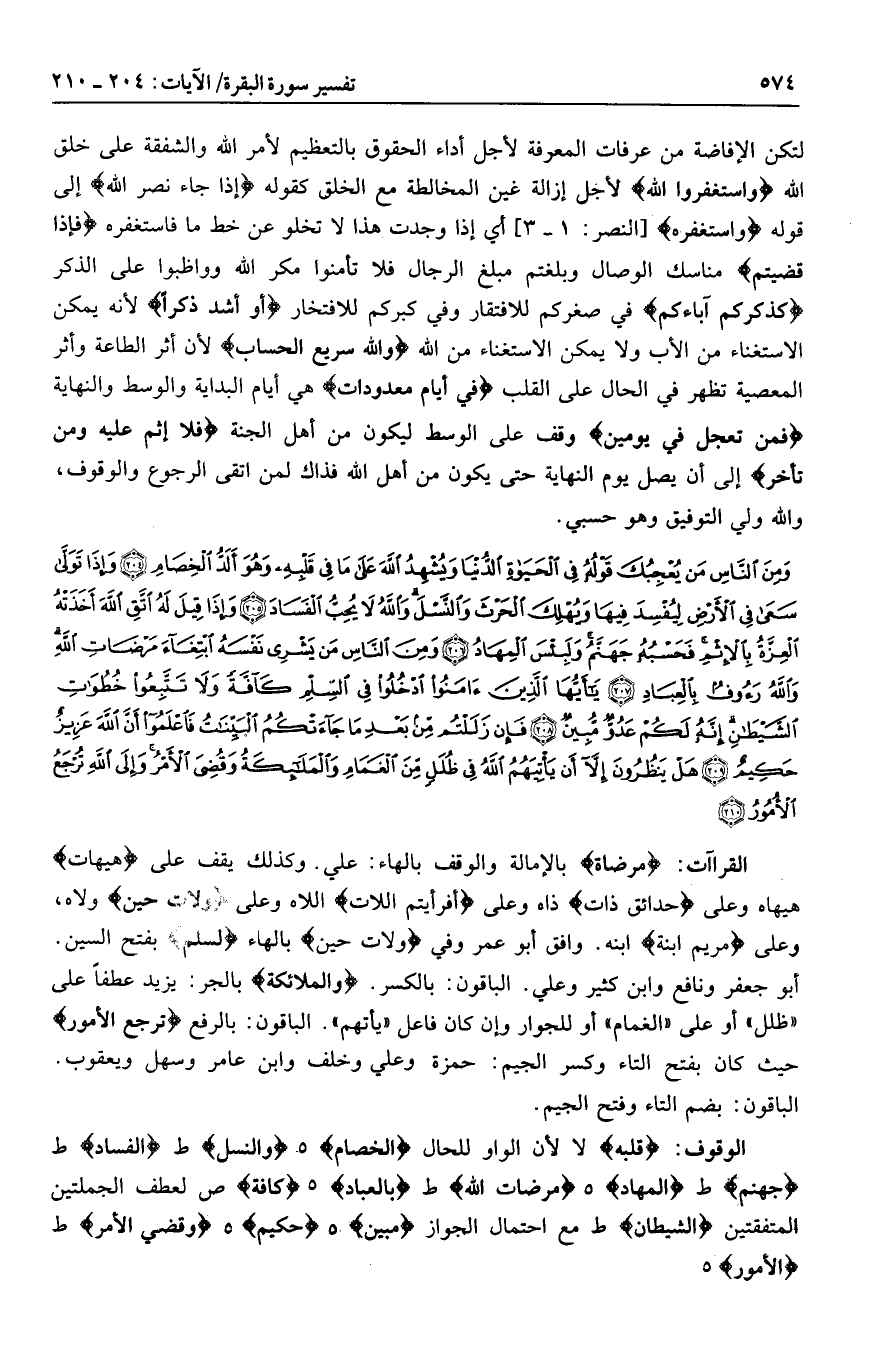 ٥٧٤ تفسير سورة البقرة/ الآيات: ٢٠٤ ـ ٢١٠
لتكن الإفاضة من عرفات المعرفة لأجل أداء الحقوق بالتعظيم لأمر الله والشفقة على خلق
الله ﴿واستغفروا الله﴾ لأجل إزالة غين المخالطة مع الخلق كقوله ﴿إذا جاء نصر الله﴾ إلى
قوله ﴿واستغفره﴾ [النصر: ١ ـ ٣] أي إذا وجدت هذا لا تخلو عن خط ما فاستغفره ﴿فإذا
قضيتم﴾ مناسك الوصال وبلغتم مبلغ الرجال فلا تأمنوا مكر الله وواظبوا على الذكر
﴿كذكركم آباءكم﴾ في صغركم للافتقار وفي كبركم للافتخار ﴿أو أشد ذكراً﴾ لأنه يمكن
الاستغناء من الأب ولا يمكن الاستغناء من الله ﴿والله سريع الحساب﴾ لأن أثر الطاعة وأثر
المعصية تظهر في الحال على القلب ﴿في أيام معدودات﴾ هي أيام البداية والوسط والنهاية
﴿فمن تعجل في يومين﴾ وقف على الوسط ليكون من أهل الجنة ﴿فلا إثم عليه ومن
تأخر﴾ إلى أن يصل يوم النهاية حتى يكون من أهل الله فذاك لمن اتقى الرجوع والوقوف،
والله ولي التوفيق وهو حسبي.
وَمِنَ ٱلنَّاسِ مَن يُعْجِبُكَ قَوْلُهُۥ فِى ٱلْحَيَوٰةِ ٱلدُّنْيَا وَيُشْهِدُ ٱللَّهَ عَلَىٰ مَا فِى قَلْبِهِۦ وَهُوَ أَلَدُّ ٱلْخِصَامِ ﴿٢٠٤﴾ وَإِذَا تَوَلَّىٰ
سَعَىٰ فِى ٱلْأَرْضِ لِيُفْسِدَ فِيهَا وَيُهْلِكَ ٱلْحَرْثَ وَٱلنَّسْلَ ۗ وَٱللَّهُ لَا يُحِبُّ ٱلْفَسَادَ ﴿٢٠٥﴾ وَإِذَا قِيلَ لَهُ ٱتَّقِ ٱللَّهَ أَخَذَتْهُ
ٱلْعِزَّةُ بِٱلْإِثْمِ ۚ فَحَسْبُهُۥ جَهَنَّمُ ۚ وَلَبِئْسَ ٱلْمِهَادُ ﴿٢٠٦﴾ وَمِنَ ٱلنَّاسِ مَن يَشْرِى نَفْسَهُ ٱبْتِغَآءَ مَرْضَاتِ ٱللَّهِ ۗ
وَٱللَّهُ رَءُوفٌۢ بِٱلْعِبَادِ ﴿٢٠٧﴾ يَٰٓأَيُّهَا ٱلَّذِينَ ءَامَنُوا۟ ٱدْخُلُوا۟ فِى ٱلسِّلْمِ كَآفَّةً وَلَا تَتَّبِعُوا۟ خُطُوَٰتِ
ٱلشَّيْطَٰنِ ۚ إِنَّهُۥ لَكُمْ عَدُوٌّ مُّبِينٌ ﴿٢٠٨﴾ فَإِن زَلَلْتُم مِّنۢ بَعْدِ مَا جَآءَتْكُمُ ٱلْبَيِّنَٰتُ فَٱعْلَمُوٓا۟ أَنَّ ٱللَّهَ عَزِيزٌ
حَكِيمٌ ﴿٢٠٩﴾ هَلْ يَنظُرُونَ إِلَّآ أَن يَأْتِيَهُمُ ٱللَّهُ فِى ظُلَلٍ مِّنَ ٱلْغَمَامِ وَٱلْمَلَٰٓئِكَةُ وَقُضِىَ ٱلْأَمْرُ ۚ وَإِلَى ٱللَّهِ تُرْجَعُ
ٱلْأُمُورُ ﴿٢١٠﴾
القراآت: ﴿مرضاة﴾ بالإمالة والوقف بالهاء: علي. وكذلك يقف على ﴿هيهات﴾
هيهاه وعلى ﴿حدائق ذات﴾ ذاه وعلى ﴿أفرأيتم اللات﴾ اللاه وعلى ﴿ولات حين﴾ ولاه،
وعلى ﴿مريم ابنة﴾ ابنه. وافق أبو عمر وفي ﴿ولات حين﴾ بالهاء ﴿لسلم﴾ بفتح السين.
أبو جعفر ونافع وابن كثير وعلي. الباقون: بالكسر. ﴿والملائكة﴾ بالجر: يزيد عطفاً على
«ظلل» أو على «الغمام» أو للجوار وإن كان فاعل «يأتهم». الباقون: بالرفع ﴿ترجع الأمور﴾
حيث كان بفتح التاء وكسر الجيم: حمزة وعلي وخلف وابن عامر وسهل ويعقوب.
الباقون: بضم التاء وفتح الجيم.
الوقوف: ﴿قلبه﴾ لا لأن الواو للحال ﴿الخصام﴾ ٥ ﴿والنسل﴾ ط ﴿الفساد﴾ ط
﴿جهنم﴾ ط ﴿المهاد﴾ ٥ ﴿مرضات الله﴾ ط ﴿بالعباد﴾ ٥ ﴿كافة﴾ ص لعطف الجملتين
المتفقتين ﴿الشيطان﴾ ط مع احتمال الجواز ﴿مبين﴾ ٥ ﴿حكيم﴾ ٥ ﴿وقضي الأمر﴾ ط
﴿الأمور﴾ ٥